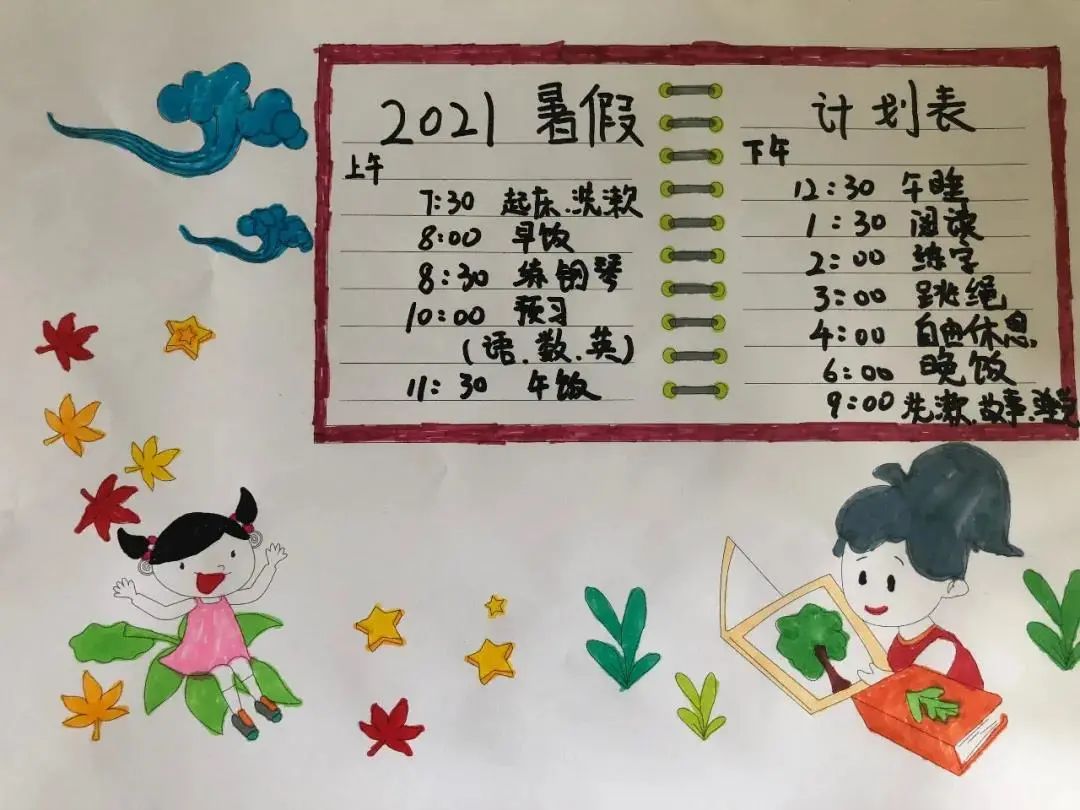 2021 暑假
上午
7:30 起床.洗漱
8:00 早饭
8:30 练钢琴
10:00 预习
(语.数.英)
11:30 午饭
计划表
下午
12:30 午睡
1:30 阅读
2:00 练字
3:00 跳绳
4:00 自由休息
6:00 晚饭
9:00 洗漱.故事.睡觉